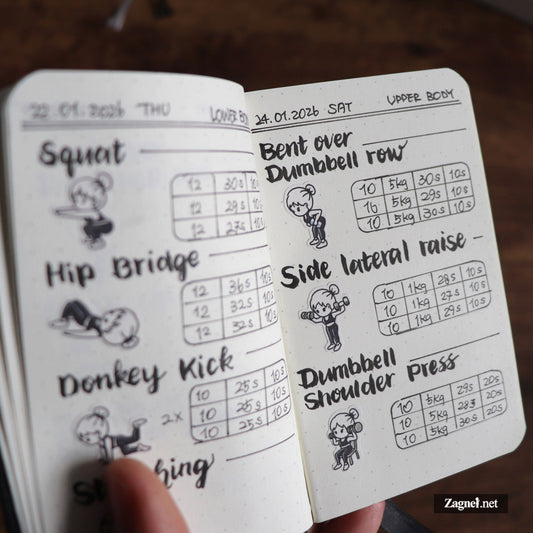 22.01.2026 THU
Squat
12 30s 10s
12 29s 10s
12 27s 10s
Hip Bridge
12 36s 10s
12 32s 10s
12 32s 10s
Donkey Kick
2x
10 25s 10s
10 25s 10s
10 25s 10s
24.01.2026 SAT UPPER BODY
Bent over
Dumbbell row
10 5kg 30s 10s
10 5kg 29s 10s
10 5kg 30s 10s
Side lateral raise
10 1kg 28s 10s
10 1kg 27s 10s
10 1kg 29s 10s
Dumbbell
Shoulder Press
10 5kg 29s 20s
10 5kg 28s 20s
10 5kg 30s 20s
Zagnel.net